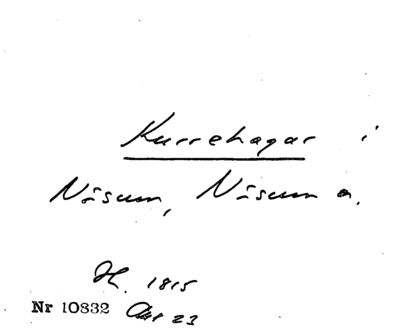 Kurrehagar i
Näsum, Näsum s.
H. 1815
Nr 10832 Akt 23